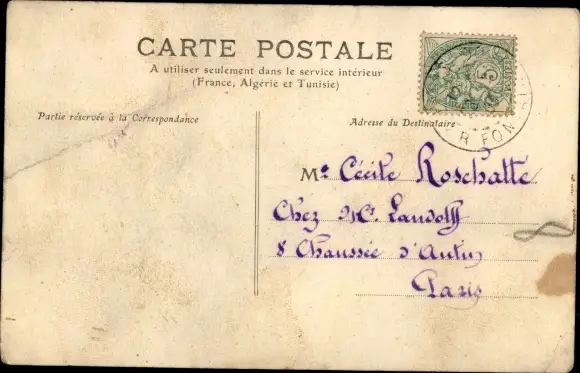 CARTE POSTALE
A utiliser seulement dans le service intérieur
(France, Algérie et Tunisie)
Partie réservée à la Correspondance
Adresse du Destinataire
Me Cécile Roschatte
Chez Mr. Landolff
8 Chaussée d'Antin
Paris